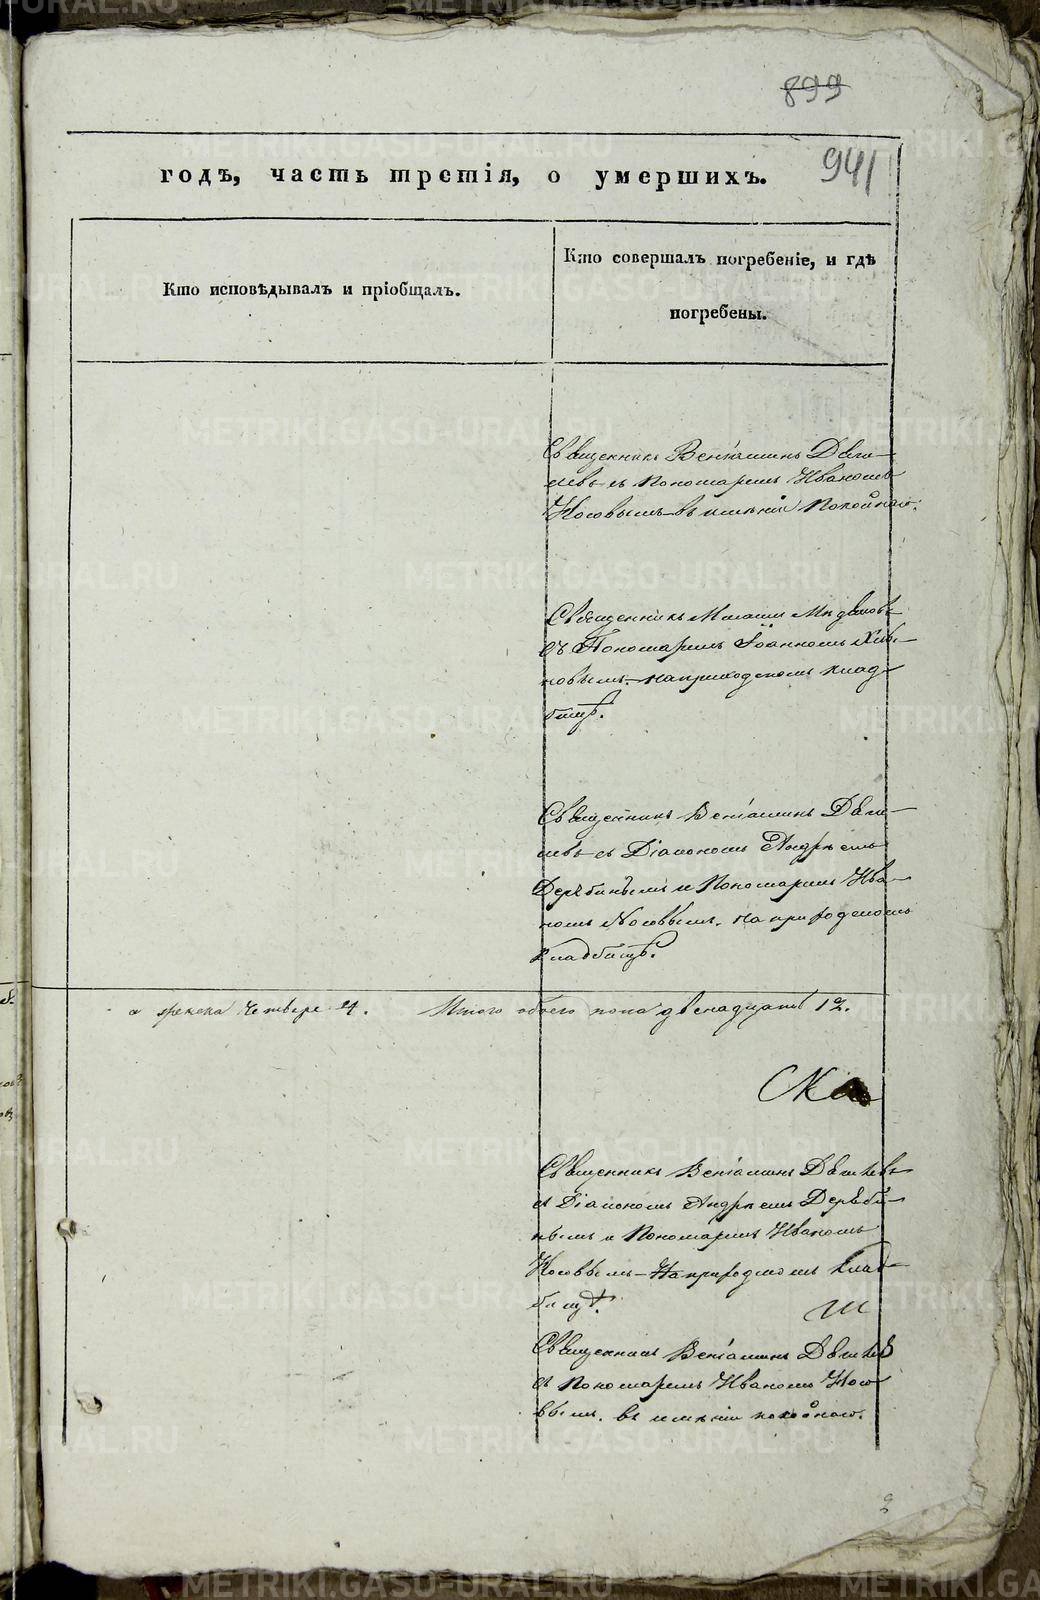 899
941
годъ, часть третія, о умершихъ.
Кто исповѣдывалъ и пріобщалъ.
Кто совершалъ погребеніе, и гдѣ
погребены.
Священникъ Веніаминъ
съ Пономаремъ Иваномъ
Носовымъ въ имѣніи Покойнаго.
Священникъ
съ Пономаремъ Іоанномъ
на приходскомъ клад-
бищѣ.
Священникъ Веніаминъ
съ Діакономъ Андреемъ
Дерябинымъ и Пономаремъ Ива-
номъ Носовымъ. на приходскомъ
кладбищѣ.
а женска Четыре 4. Итого обоего пола двенадцать 12.
Священникъ Веніаминъ
съ Діакономъ Андреемъ Деряби-
нымъ и Пономаремъ Иваномъ
Носовымъ – На приходскомъ клад-
бищѣ.
Священникъ Веніаминъ
съ Пономаремъ Иваномъ Носо-
вымъ. въ имѣніи покойнаго.
METRIKI.GASO-URAL.RU